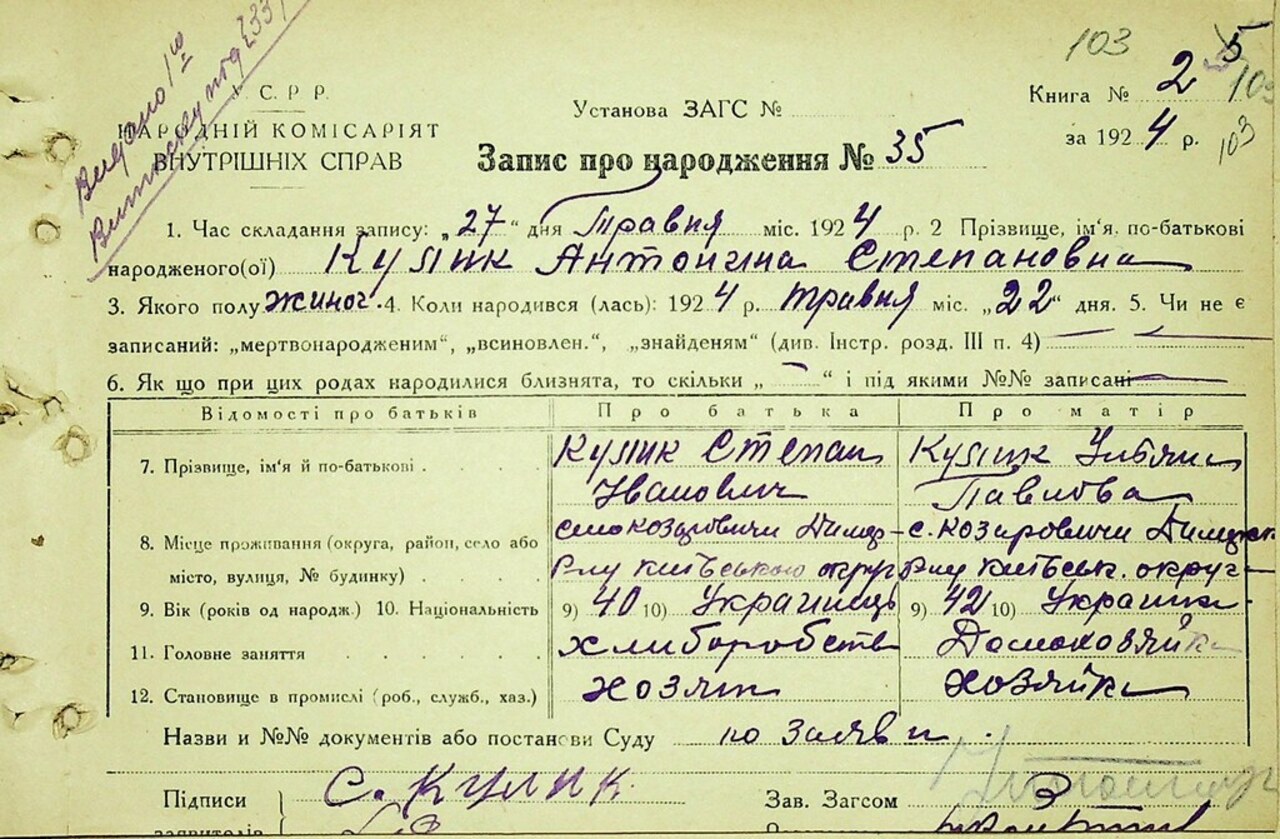 103
5
Видано 1ю
Виписку під
У. С. Р. Р.
Установа ЗАГС №
Книга № 2
103
НАРОДНІЙ КОМІСАРІЯТ
за 1924 р.
103
ВНУТРІШНІХ СПРАВ
Запис про народження № 35
1. Час складання запису: „27“ дня Травня міс. 1924 р. 2 Прізвище, ім'я, по-батькові
народженого(ої) Кулик Антонина Степановна
3. Якого полу жиноч. 4. Коли народився (лась): 1924 р. травня міс. „22“ дня. 5. Чи не є
записаний: „мертвонародженим“, „всиновлен.“, „знайденям“ (див. Інстр. розд. III п. 4)
6. Як що при цих родах народилися близнята, то скільки „ “ і під якими №№ записані
Відомості про батьків Про батька Про матір
7. Прізвище, ім'я й по-батькові . . . . Кулик Степан Кулик Ульяна
Іванович Павлова
8. Місце проживання (округа, район, село або село Козаровичи Димер- с. Козаровичи Димерск
місто, вулиця, № будинку) . . . . р-ну Київської округи р-ну Київськ. округи
9. Вік (років од народж.) 10. Національність 9) 40 10) Украинець 9) 42 10) Украинка
11. Головне заняття . . . . . хлиборобств Домохозяйка
12. Становище в промислі (роб., служб., хаз.) хозяин хозяйка
Назви и №№ документів або постанови Суду по заяви.
Підписи С. Кулик
Зав. Загсом
заявителів